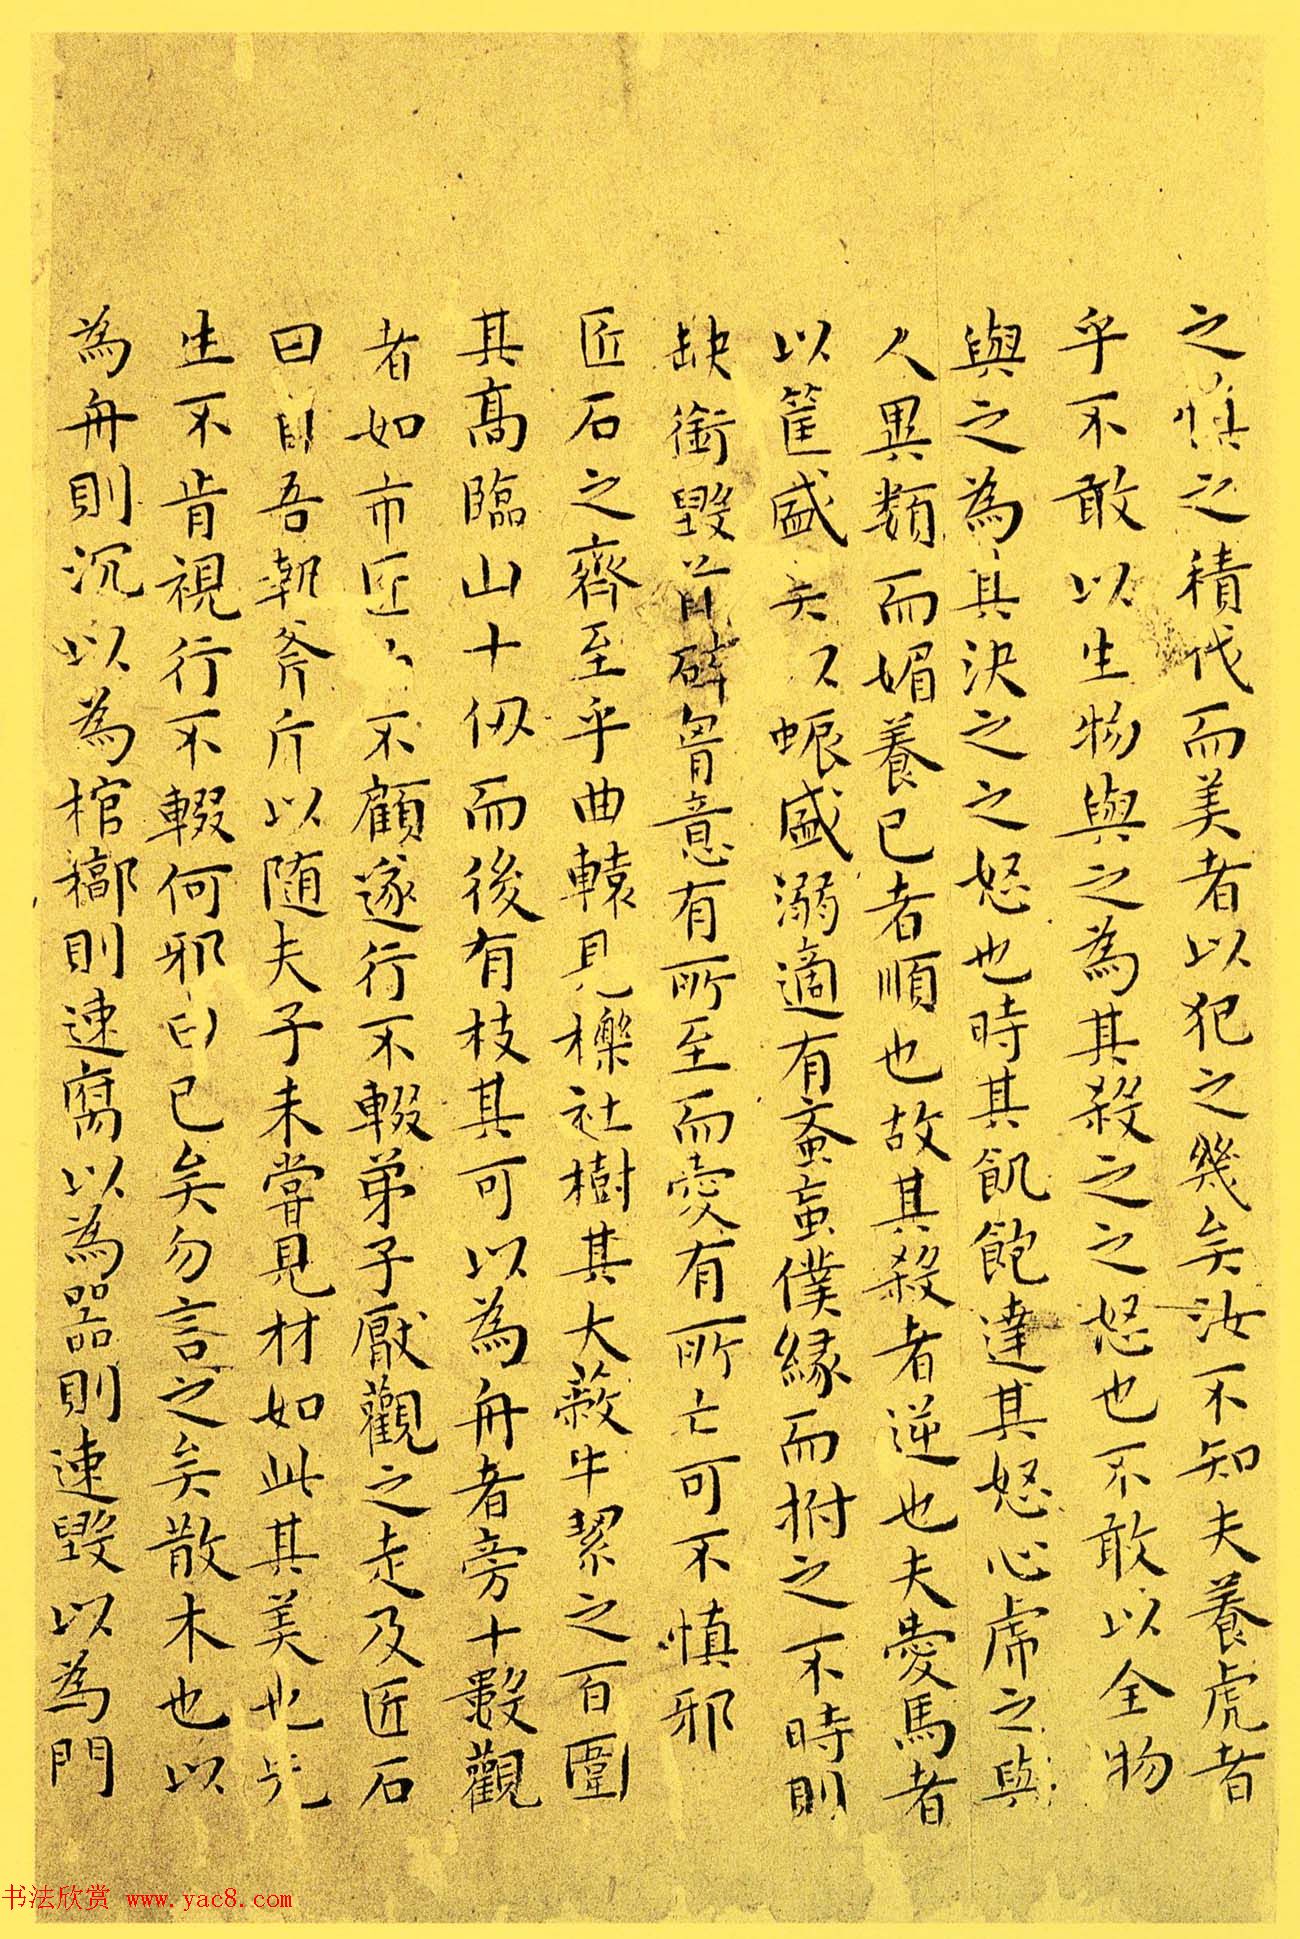 之慎之積伐而美者以犯之幾矣汝不知夫養虎者
乎不敢以生物與之為其殺之之怒也不敢以全物
與之為其決之之怒也時其飢飽達其怒心虎之與
人異類而媚養己者順也故其殺者逆也夫愛馬者
以筐盛矢以蜄盛溺適有蚉䖟僕緣而拊之不時則
缺銜毀首碎胷意有所至而愛有所亡可不慎邪
匠石之齊至乎曲轅見櫟社樹其大蔽牛絜之百圍
其高臨山十仞而後有枝其可以為舟者旁十數觀
者如市匠不顧遂行不輟弟子厭觀之走及匠石
曰自吾執斧斤以随夫子未嘗見材如此其美也先
生不肯視行不輟何邪曰已矣勿言之矣散木也以
為舟則沉以為棺槨則速腐以為器則速毀以為門
书法欣赏 www.yac8.com